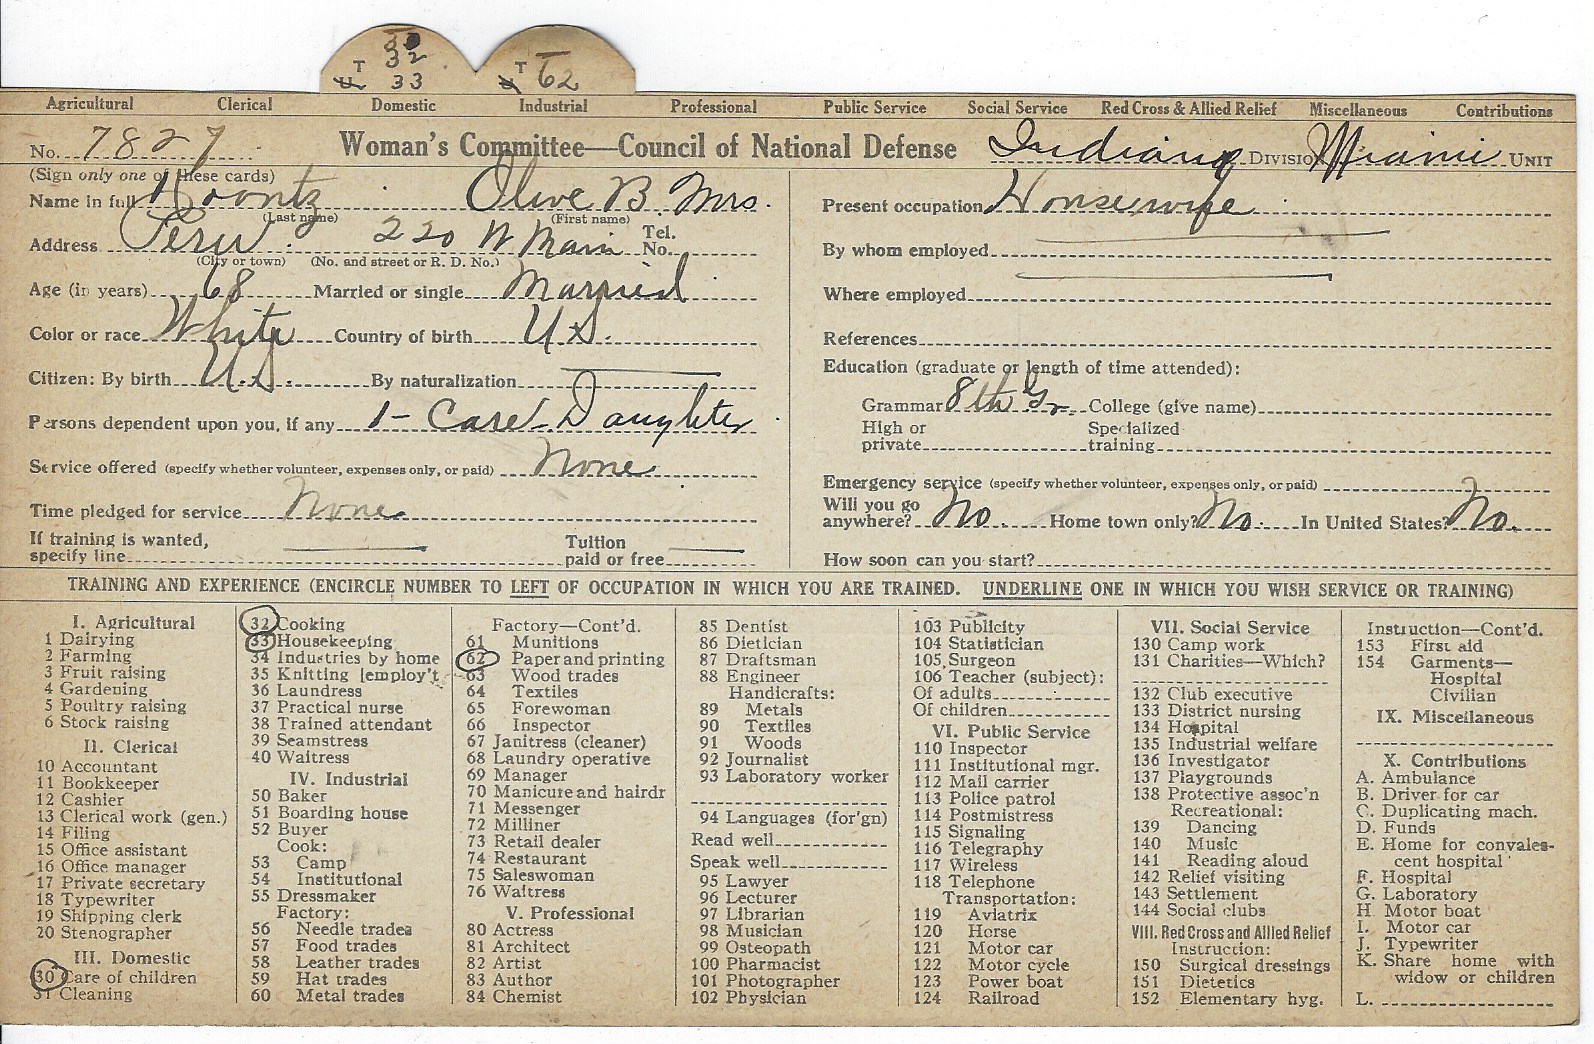 30
T 32
33
T 62
Agricultural Clerical Domestic Industrial Professional Public Service Social Service Red Cross & Allied Relief Miscellaneous Contributions
No. 7827 Woman's Committee—Council of National Defense Indiana DIVISION Miami UNIT
(Sign only one of these cards)
Name in full Koontz Olive B Mrs.
(Last name) (First name)
Address Peru 220 W Main Tel. No.
(City or town) (No. and street or R. D. No.)
Age (in years) 68 Married or single Married
Color or race White Country of birth U.S.
Citizen: By birth U.S. By naturalization
Persons dependent upon you, if any 1 - Care - Daughter
Service offered (specify whether volunteer, expenses only, or paid) None
Time pledged for service None
If training is wanted,
specify line
Tuition
paid or free
Present occupation Housewife
By whom employed
Where employed
References
Education (graduate or length of time attended):
Grammar 8th Gr. College (give name)
High or
private
Specialized
training
Emergency service (specify whether volunteer, expenses only, or paid)
Will you go
anywhere? No. Home town only? No. In United States? No.
How soon can you start?
TRAINING AND EXPERIENCE (ENCIRCLE NUMBER TO LEFT OF OCCUPATION IN WHICH YOU ARE TRAINED. UNDERLINE ONE IN WHICH YOU WISH SERVICE OR TRAINING)
I. Agricultural
1 Dairying
2 Farming
3 Fruit raising
4 Gardening
5 Poultry raising
6 Stock raising
II. Clerical
10 Accountant
11 Bookkeeper
12 Cashier
13 Clerical work (gen.)
14 Filing
15 Office assistant
16 Office manager
17 Private secretary
18 Typewriter
19 Shipping clerk
20 Stenographer
III. Domestic
30 Care of children
31 Cleaning
32 Cooking
33 Housekeeping
34 Industries by home
35 Knitting [employ't
36 Laundress
37 Practical nurse
38 Trained attendant
39 Seamstress
40 Waitress
IV. Industrial
50 Baker
51 Boarding house
52 Buyer
Cook:
53 Camp
54 Institutional
55 Dressmaker
Factory:
56 Needle trades
57 Food trades
58 Leather trades
59 Hat trades
60 Metal trades
Factory—Cont'd.
61 Munitions
62 Paper and printing
63 Wood trades
64 Textiles
65 Forewoman
66 Inspector
67 Janitress (cleaner)
68 Laundry operative
69 Manager
70 Manicure and hairdr
71 Messenger
72 Milliner
73 Retail dealer
74 Restaurant
75 Saleswoman
76 Waitress
V. Professional
80 Actress
81 Architect
82 Artist
83 Author
84 Chemist
85 Dentist
86 Dietician
87 Draftsman
88 Engineer
Handicrafts:
89 Metals
90 Textiles
91 Woods
92 Journalist
93 Laboratory worker
94 Languages (for'gn)
Read well
Speak well
95 Lawyer
96 Lecturer
97 Librarian
98 Musician
99 Osteopath
100 Pharmacist
101 Photographer
102 Physician
103 Publicity
104 Statistician
105 Surgeon
106 Teacher (subject):
Of adults
Of children
VI. Public Service
110 Inspector
111 Institutional mgr.
112 Mail carrier
113 Police patrol
114 Postmistress
115 Signaling
116 Telegraphy
117 Wireless
118 Telephone
Transportation:
119 Aviatrix
120 Horse
121 Motor car
122 Motor cycle
123 Power boat
124 Railroad
VII. Social Service
130 Camp work
131 Charities—Which?
132 Club executive
133 District nursing
134 Hospital
135 Industrial welfare
136 Investigator
137 Playgrounds
138 Protective assoc'n
Recreational:
139 Dancing
140 Music
141 Reading aloud
142 Relief visiting
143 Settlement
144 Social clubs
VIII. Red Cross and Allied Relief
Instruction:
150 Surgical dressings
151 Dietetics
152 Elementary hyg.
Instruction—Cont'd.
153 First aid
154 Garments—
Hospital
Civilian
IX. Miscellaneous
X. Contributions
A. Ambulance
B. Driver for car
C. Duplicating mach.
D. Funds
E. Home for convales-
cent hospital
F. Hospital
G. Laboratory
H. Motor boat
I. Motor car
J. Typewriter
K. Share home with
widow or children
L.